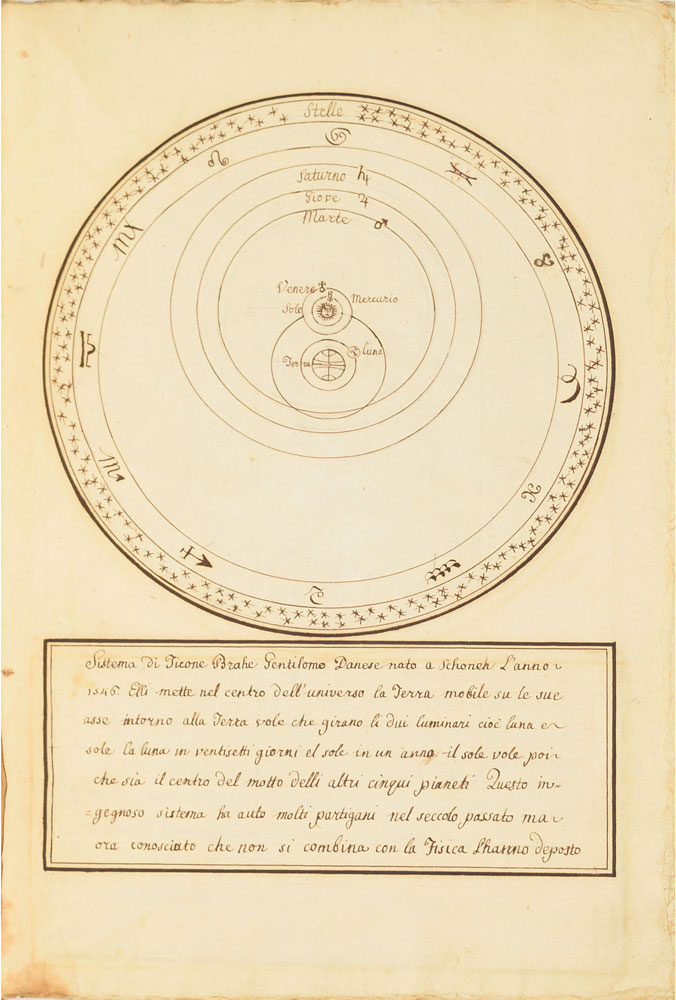 Stelle
Saturno ♄
Giove ♃
Marte ♂
Venere ♀
☿ Mercurio
Sole
luna
Terra
Sistema di Ticone Brahe Gentilomo Danese nato a Schoneh L'anno
1546. Elli mette nel centro dell'universo la Terra mobile su le sue
asse intorno alla Terra vole che girano li dui luminari cioè luna e
sole la luna in ventisetti giorni el sole in un anno il sole vole poi
che sia il centro del motto delli altri cinqui pianeti Questo in=
=gegnoso sistema ha auto molti partigani nel seccolo passato ma
ora conosciato che non si combina con la Fisica L'hanno deposto